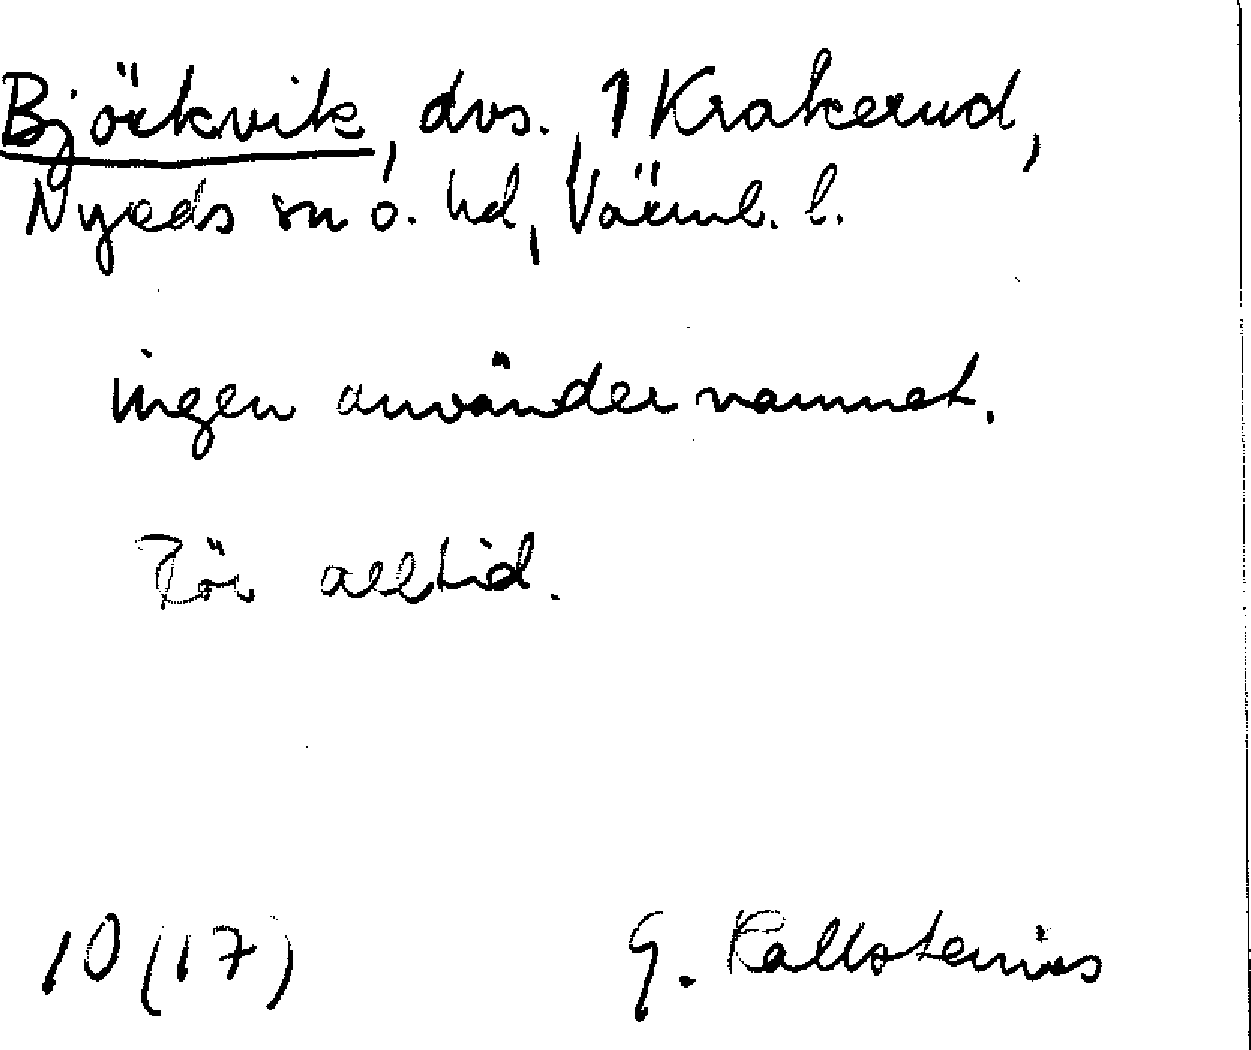 Björkvik, dvs. 1 Krakerud,
Nyeds sn o. hd, Värml. l.
ingen använder namnet.
För alltid.
10 (17) G. Kallstenius